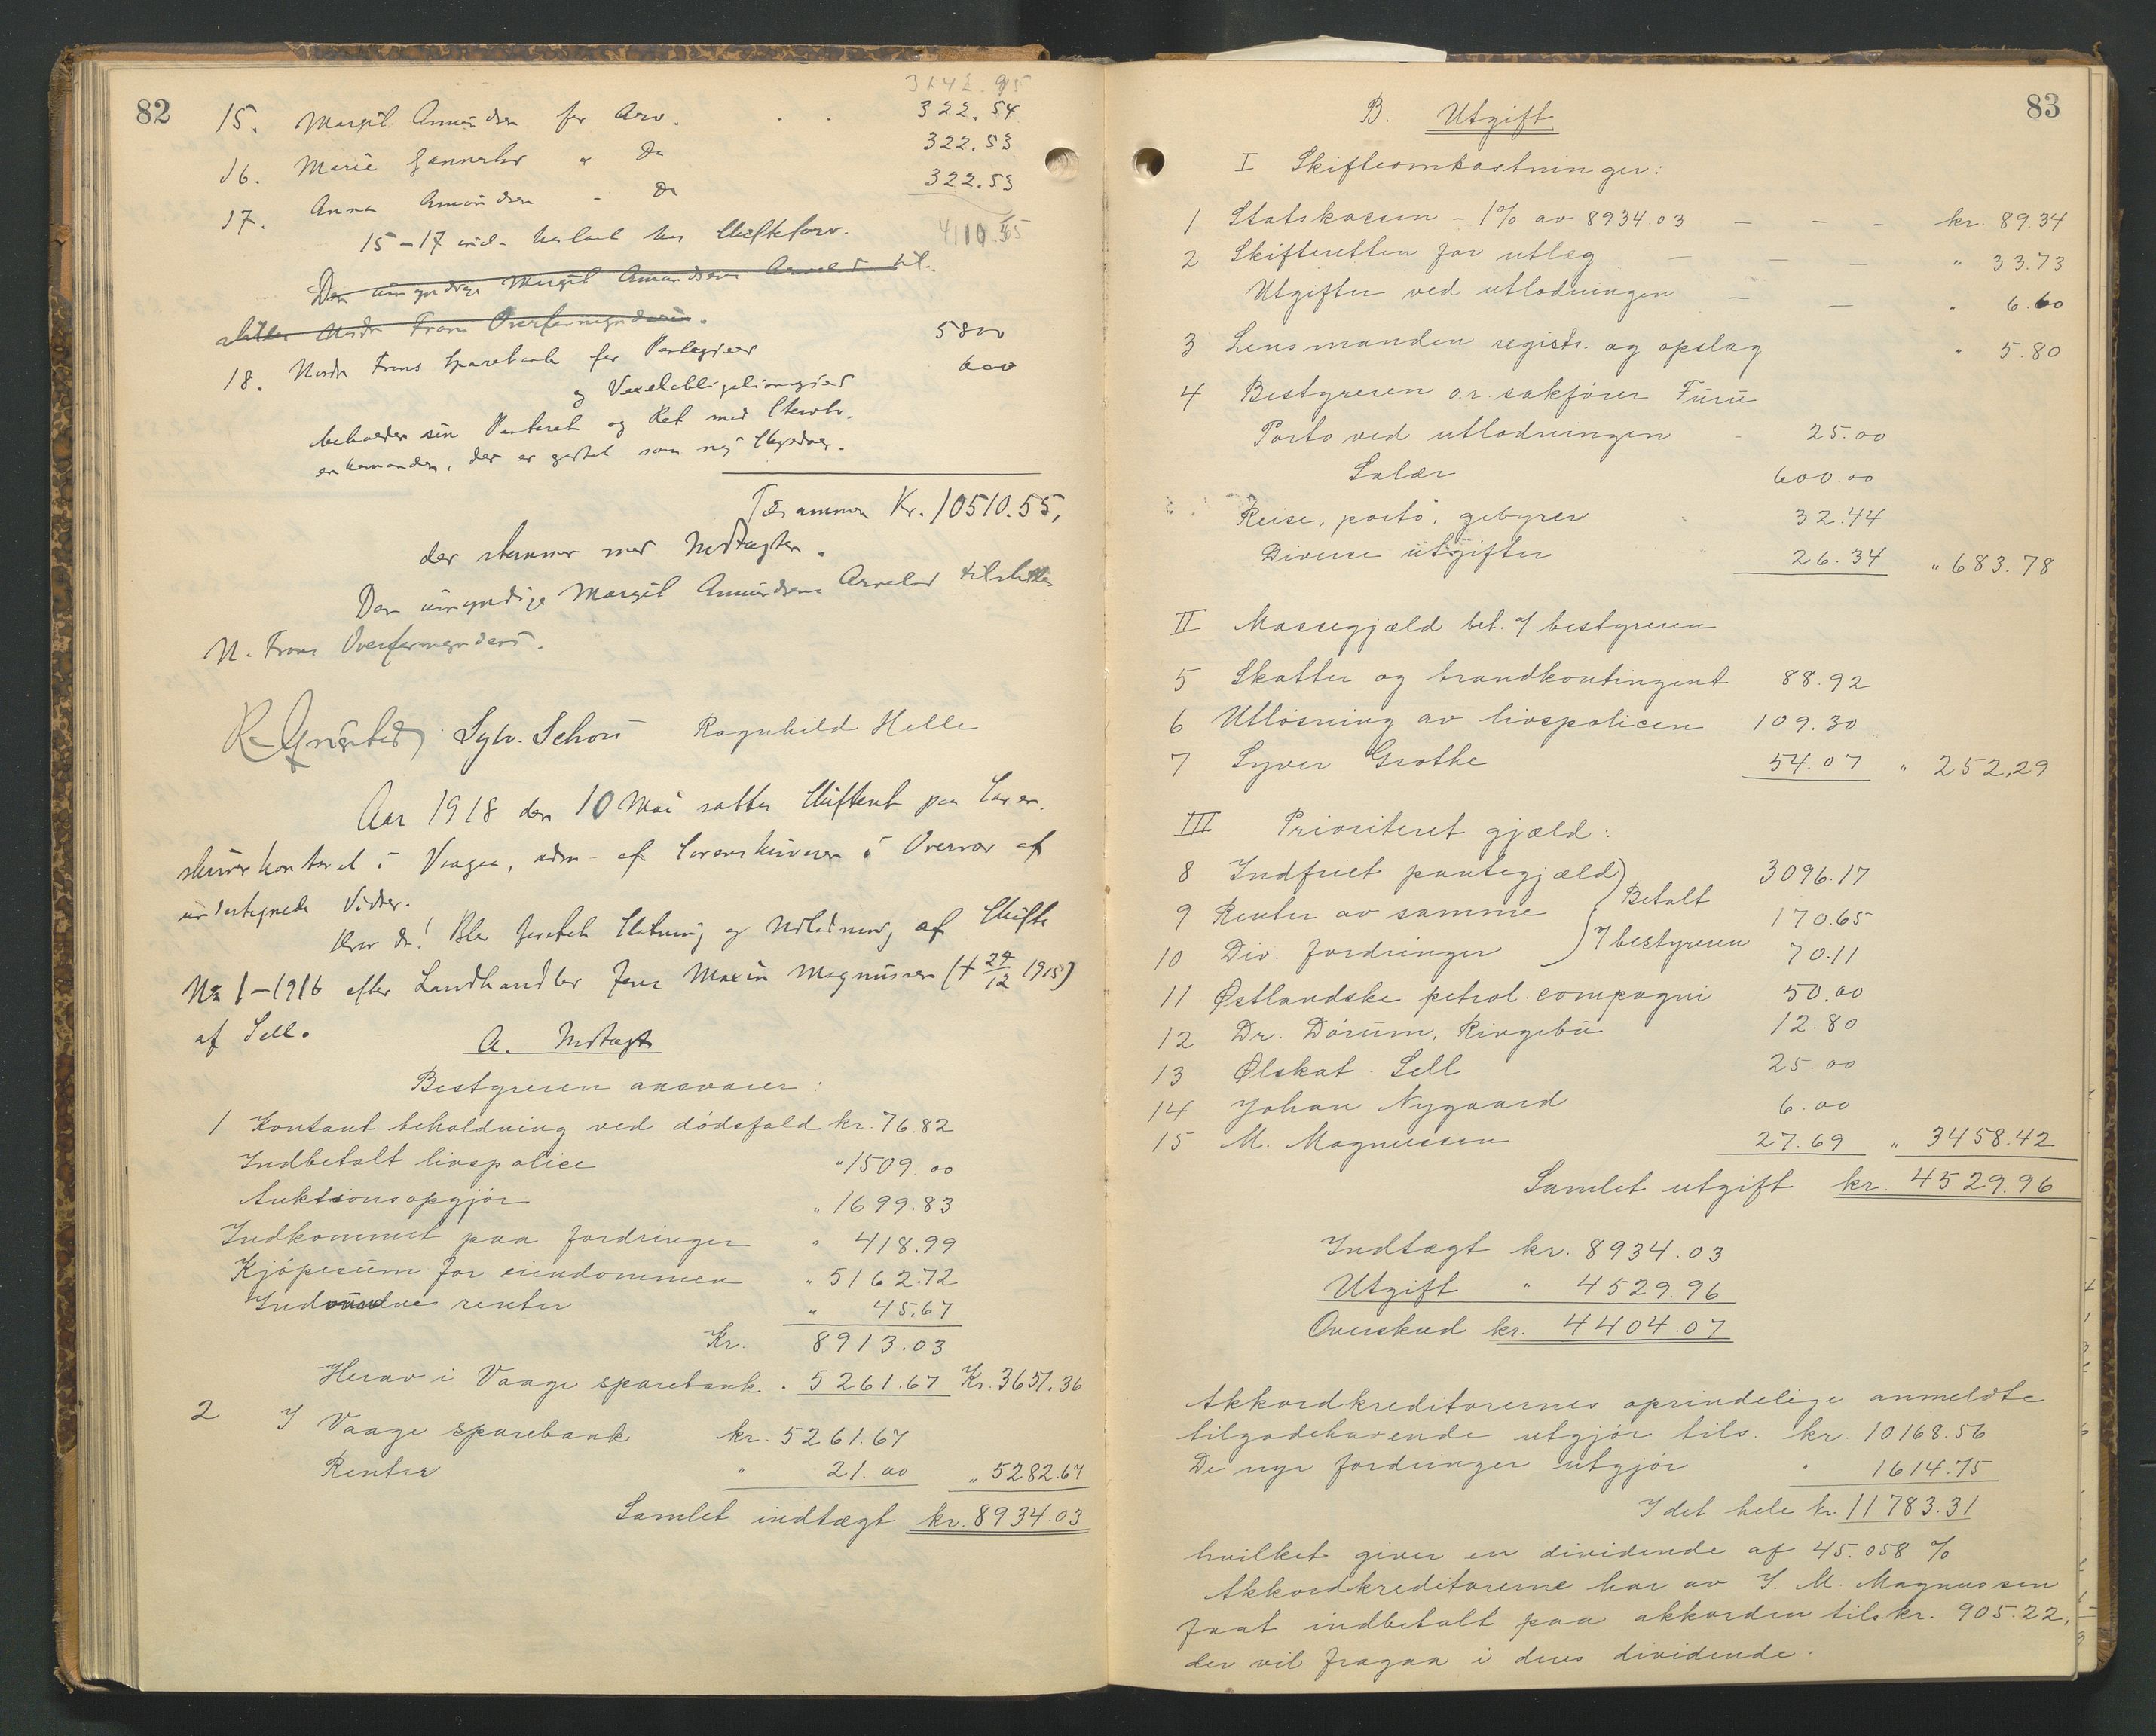 82
3142.95
15. Margit Amundsen for Arv. 322.54
16. Marie " Do 322.53
17. Anna Amundsen - Do 322.53
15-17 indb. hos Skifteforv.
4110.55
Den umyndige Margit Amundsens Arvelod til-
stilles Nordre Frons Overformynderi.
18. Nordr Frons Sparebank for Pantegjæld 5800
og Vexelobligationsgjæld 600
beholder sin Panteret og Ret mod
enkemanden, der er godtat som ny Skyldner.
Tilsammen Kr. 10510.55,
der stemmer med Indtægten.
Den umyndige Margit Amundsens Arvelod tilstilles
N. Frons Overformynderi.
Sylv. Schou Ragnhild Helle
Aar 1918 den 10 Mai sattes Skifteret paa Soren-
skriverkontoret i Vaage, adm. af Sorenskriveren i Overvær af
undertegnede Vidner.
Hvor da! Blev foretat Slutning og Utlodning af Skifte
No 1-1916 efter Landhandler Jens Maxim Magnussen († 24/12 1915)
af Sell.
A. Indtægt
Bestyreren ansvarer:
1 Kontant beholdning ved dødsfald kr. 76.82
Indbetalt livspolice " 1509.00
Auktionsopgjør " 1699.83
Indkommet paa fordringer " 418.99
Kjøpesum for eiendommen " 5162.72
Indvundne renter " 45.67
Kr. 8913.03
Herav i Vaage sparebank . 5261.67 Kr. 3651.36
2 I Vaage sparebank kr. 5261.67
Renter " 21.00 " 5282.67
Samlet indtægt kr. 8934.03
83
B. Utgift
I Skifteomkostninger:
1 Statskassen - 1% av 8934.03 - - - kr. 89.34
2 Skifteretten for utlæg - - - " 33.73
Utgifter ved utlodningen - - " 6.60
3 Lensmanden registr. og opslag " 5.80
4 Bestyreren o.r. sakfører Furu
Porto ved utlodningen - 25.00
Salær 600.00
Reise, porto, gebyrer 32.44
Diverse utgifter 26.34 " 683.78
II Massegjæld bet. af bestyreren
5 Skatter og brandkontingent 88.92
6 Utløsning av livspolicen 109.30
7 Syver Grothe 54.07 " 252.29
III Prioritert gjæld:
8 Indfriet pantegjæld 3096.17
9 Renter av samme Betalt 170.65
10 Div. fordringer af bestyreren 70.11
11 Østlandske petrol. compagni 50.00
12 Dr. Dørum, Ringebu 12.80
13 Ølskat Sell 25.00
14 Johan Nygaard 6.00
15 M. Magnussen 27.69 " 3458.42
Samlet utgift kr. 4529.96
Indtægt kr. 8934.03
Utgift " 4529.96
Overskud kr. 4404.07
Akkordkreditorernes oprindelige anmeldte
tilgodehavende utgjør tils. kr. 10168.56
De nye fordringer utgjør " 1614.75
I det hele kr. 11783.31
hvilket giver en dividende af 45.058 %
Akkordkreditorerne har av J. M. Magnussen
faat indbetalt paa akkorden tils. kr. 905.22,
der vil fragaa i deres dividende.